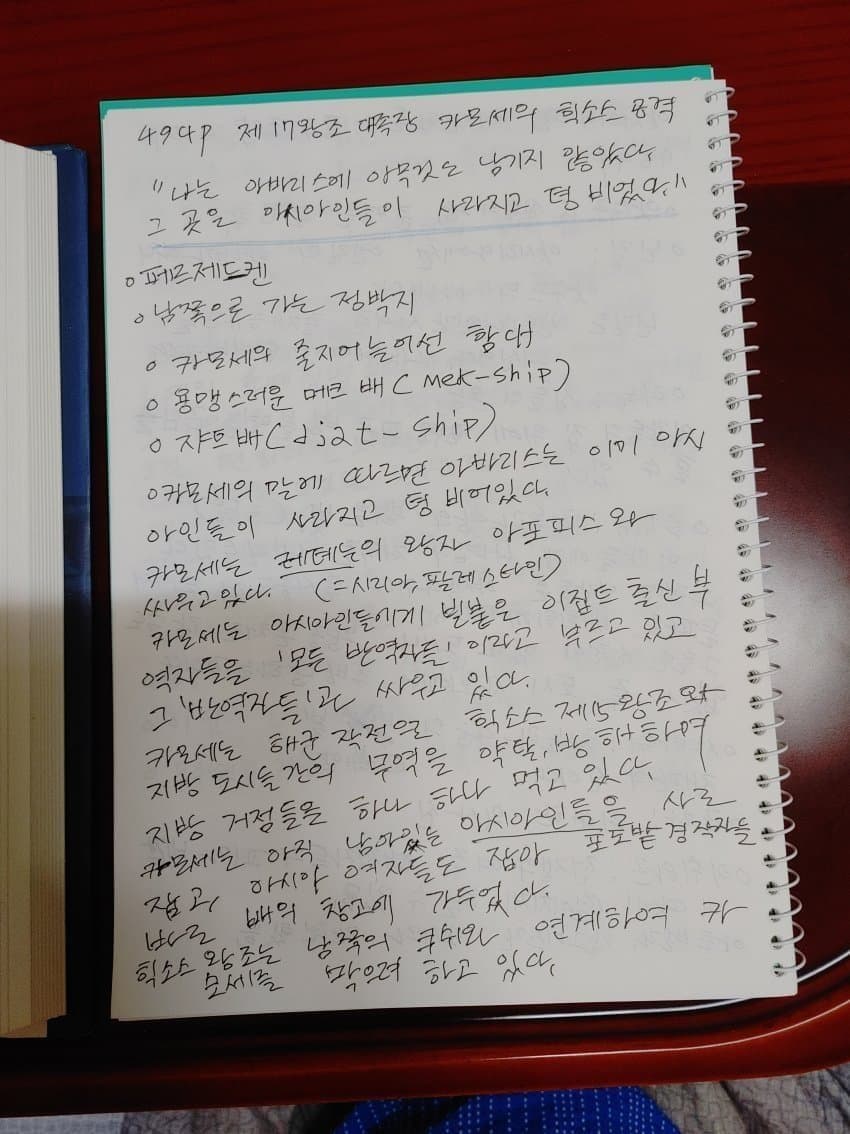 494P 제17왕조 대족장 카모세의 힉소스 공격
"나는 아바리스에 아무것도 남기지 않았다.
그 곳은 아시아인들이 사라지고 텅 비었다."
o 페르제드켄
o 남쪽으로 가는 정박지
o 카모세의 줄지어 늘어선 함대
o 용맹스러운 메크 배(mek-ship)
o 쟈트배(djat-ship)
o 카모세의 말에 따르면 아바리스는 이미 아시
아인들이 사라지고 텅 비어있다.
카모세는 레테누의 왕자 아포피스와
싸우고있다. (=시리아, 팔레스타인)
카모세는 아시아인들에게 빌붙은 이집트 출신 부
역자들을 '모든 반역자들' 이라고 부르고 있고
그 '반역자들'과 싸우고 있다.
카모세는 해군 작전으로 힉소스 제15왕조와
지방 도시들간의 무역을 약탈, 방해하며
지방 거점들을 하나 하나 먹고 있다.
카모세는 아직 남아있는 아시아인들을 사로
잡고, 아시아 여자들도 잡아 포도밭 경작자들
바로 배의 창고에 가두었다.
힉소스 왕조는 남쪽의 쿠쉬와 연계하여 카
모세를 막으려 하고 있다.